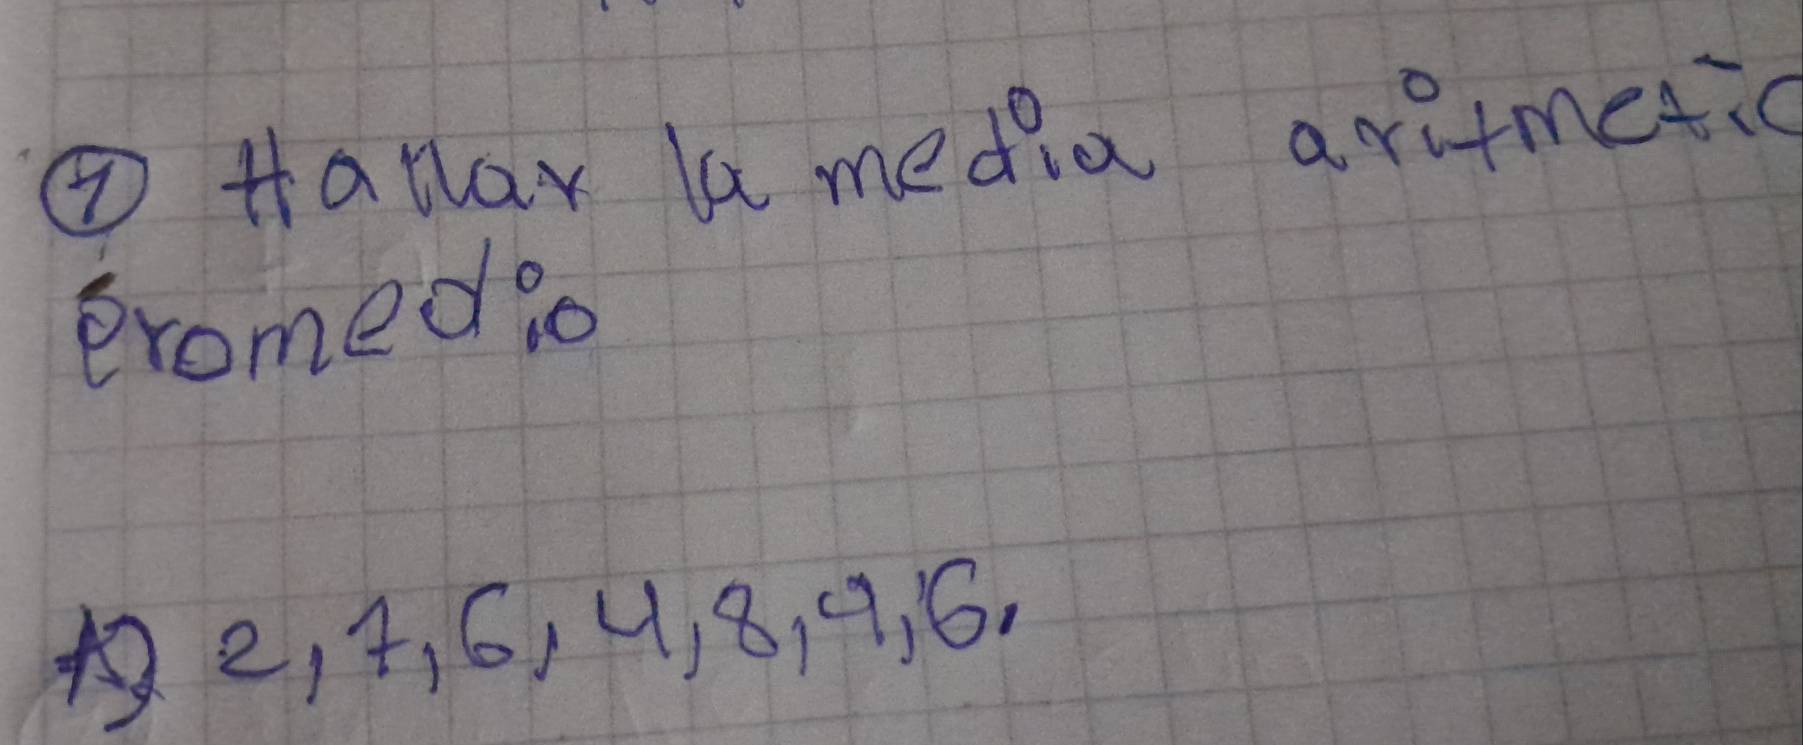 ① Hallar la media aritmetic
promedio
A) 2, 7, 6, 4, 8, 9, 6.